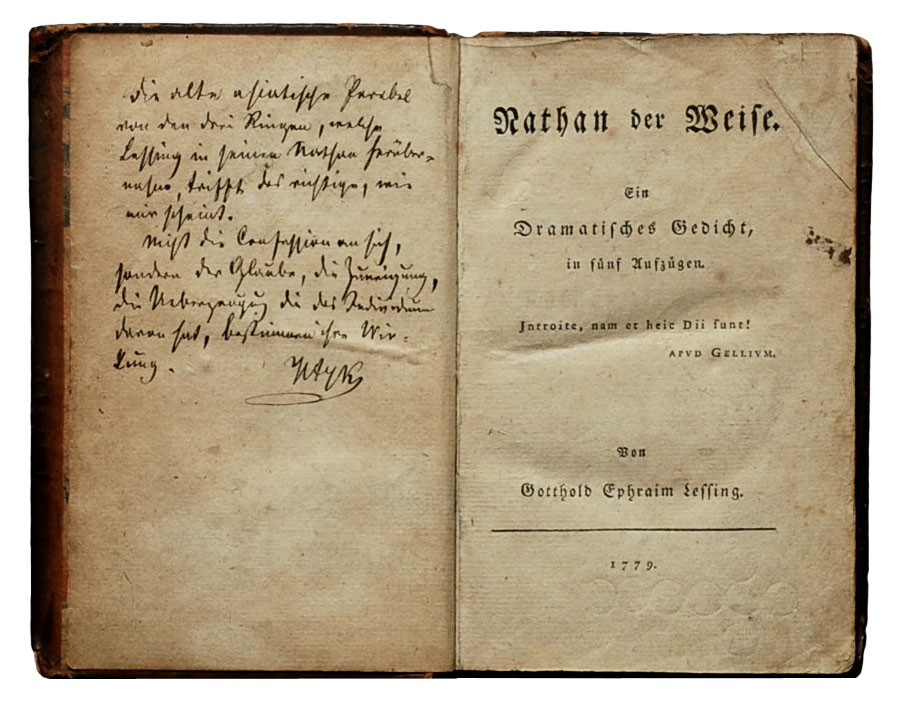 die alte asiatische Parabel
von den drei Ringen, welche
Lessing in seinen Nathan herüber-
nahm, trifft das richtige, wie
mir scheint.
Nicht die Confession an sich,
sondern der Glaube, die Zuneigung,
die Ueberzeugug die das Individuum
daran hat, bestimmen ihre Wir-
kung.
Nathan der Weiſe.
Ein
Dramatiſches Gedicht,
in fünf Aufzügen.
Jntroite, nam et heic Dii ſunt!
APVD GELLIVM.
Von
Gotthold Ephraim Leſſing.
1779.